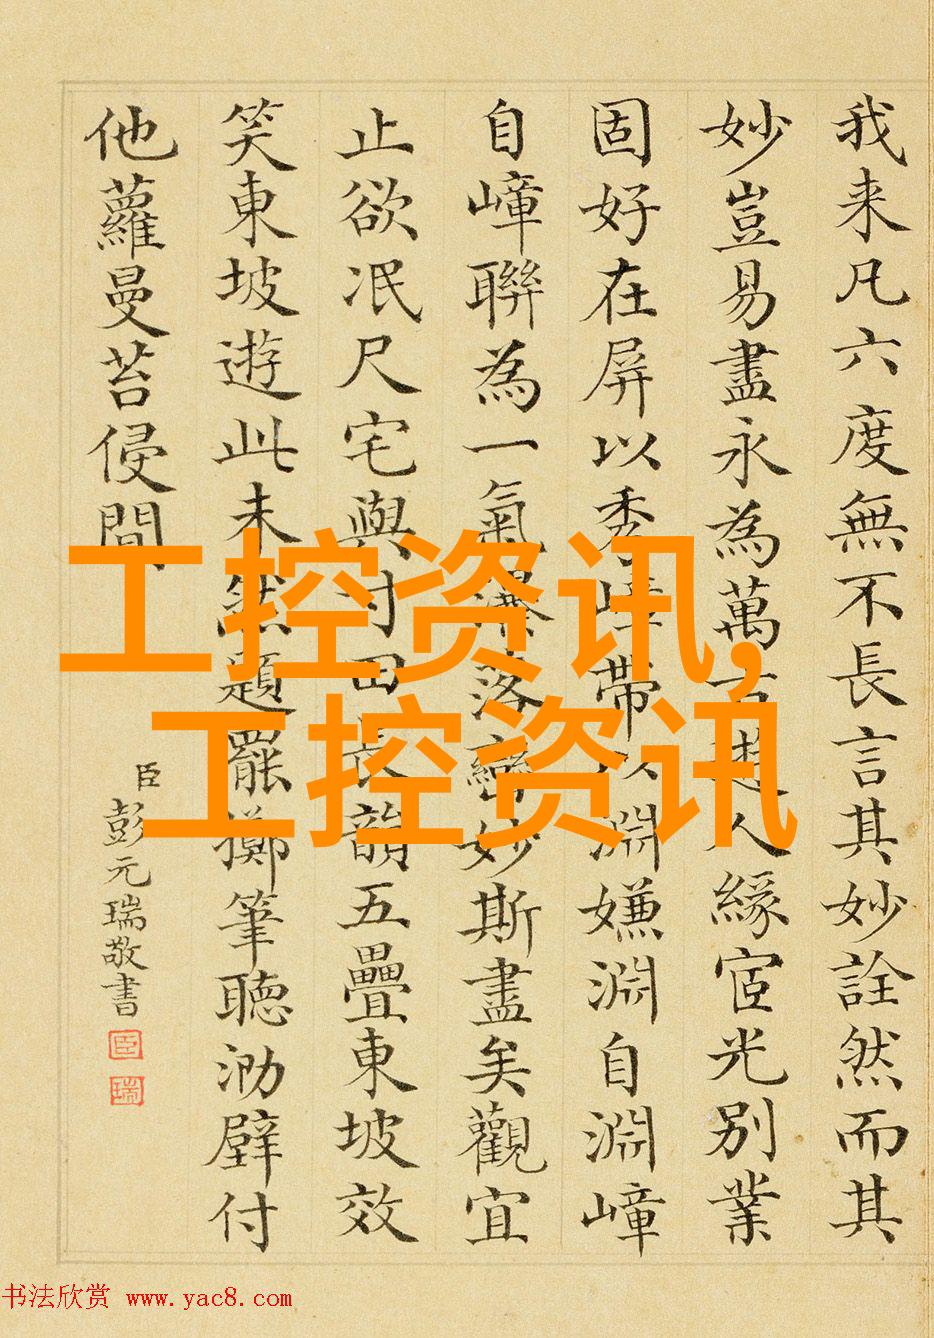 我来凡六度無不長言其妙詮然而其
妙豈易盡永為萬古人緣宧光別業
固好在屏以秀嶂帶以淵嫌淵自淵嶂
自嶂聯為一氣瀑落妙斯盡矣觀宜
止欲冺尺宅與寸田長韻五疊東坡效
笑東坡遊此未然題罷擲筆聽泐壁付
他蘿曼苔侵間
臣彭元瑞敬書
臣
瑞
工控资讯,
工控资讯
书法欣赏 www.yac8.com